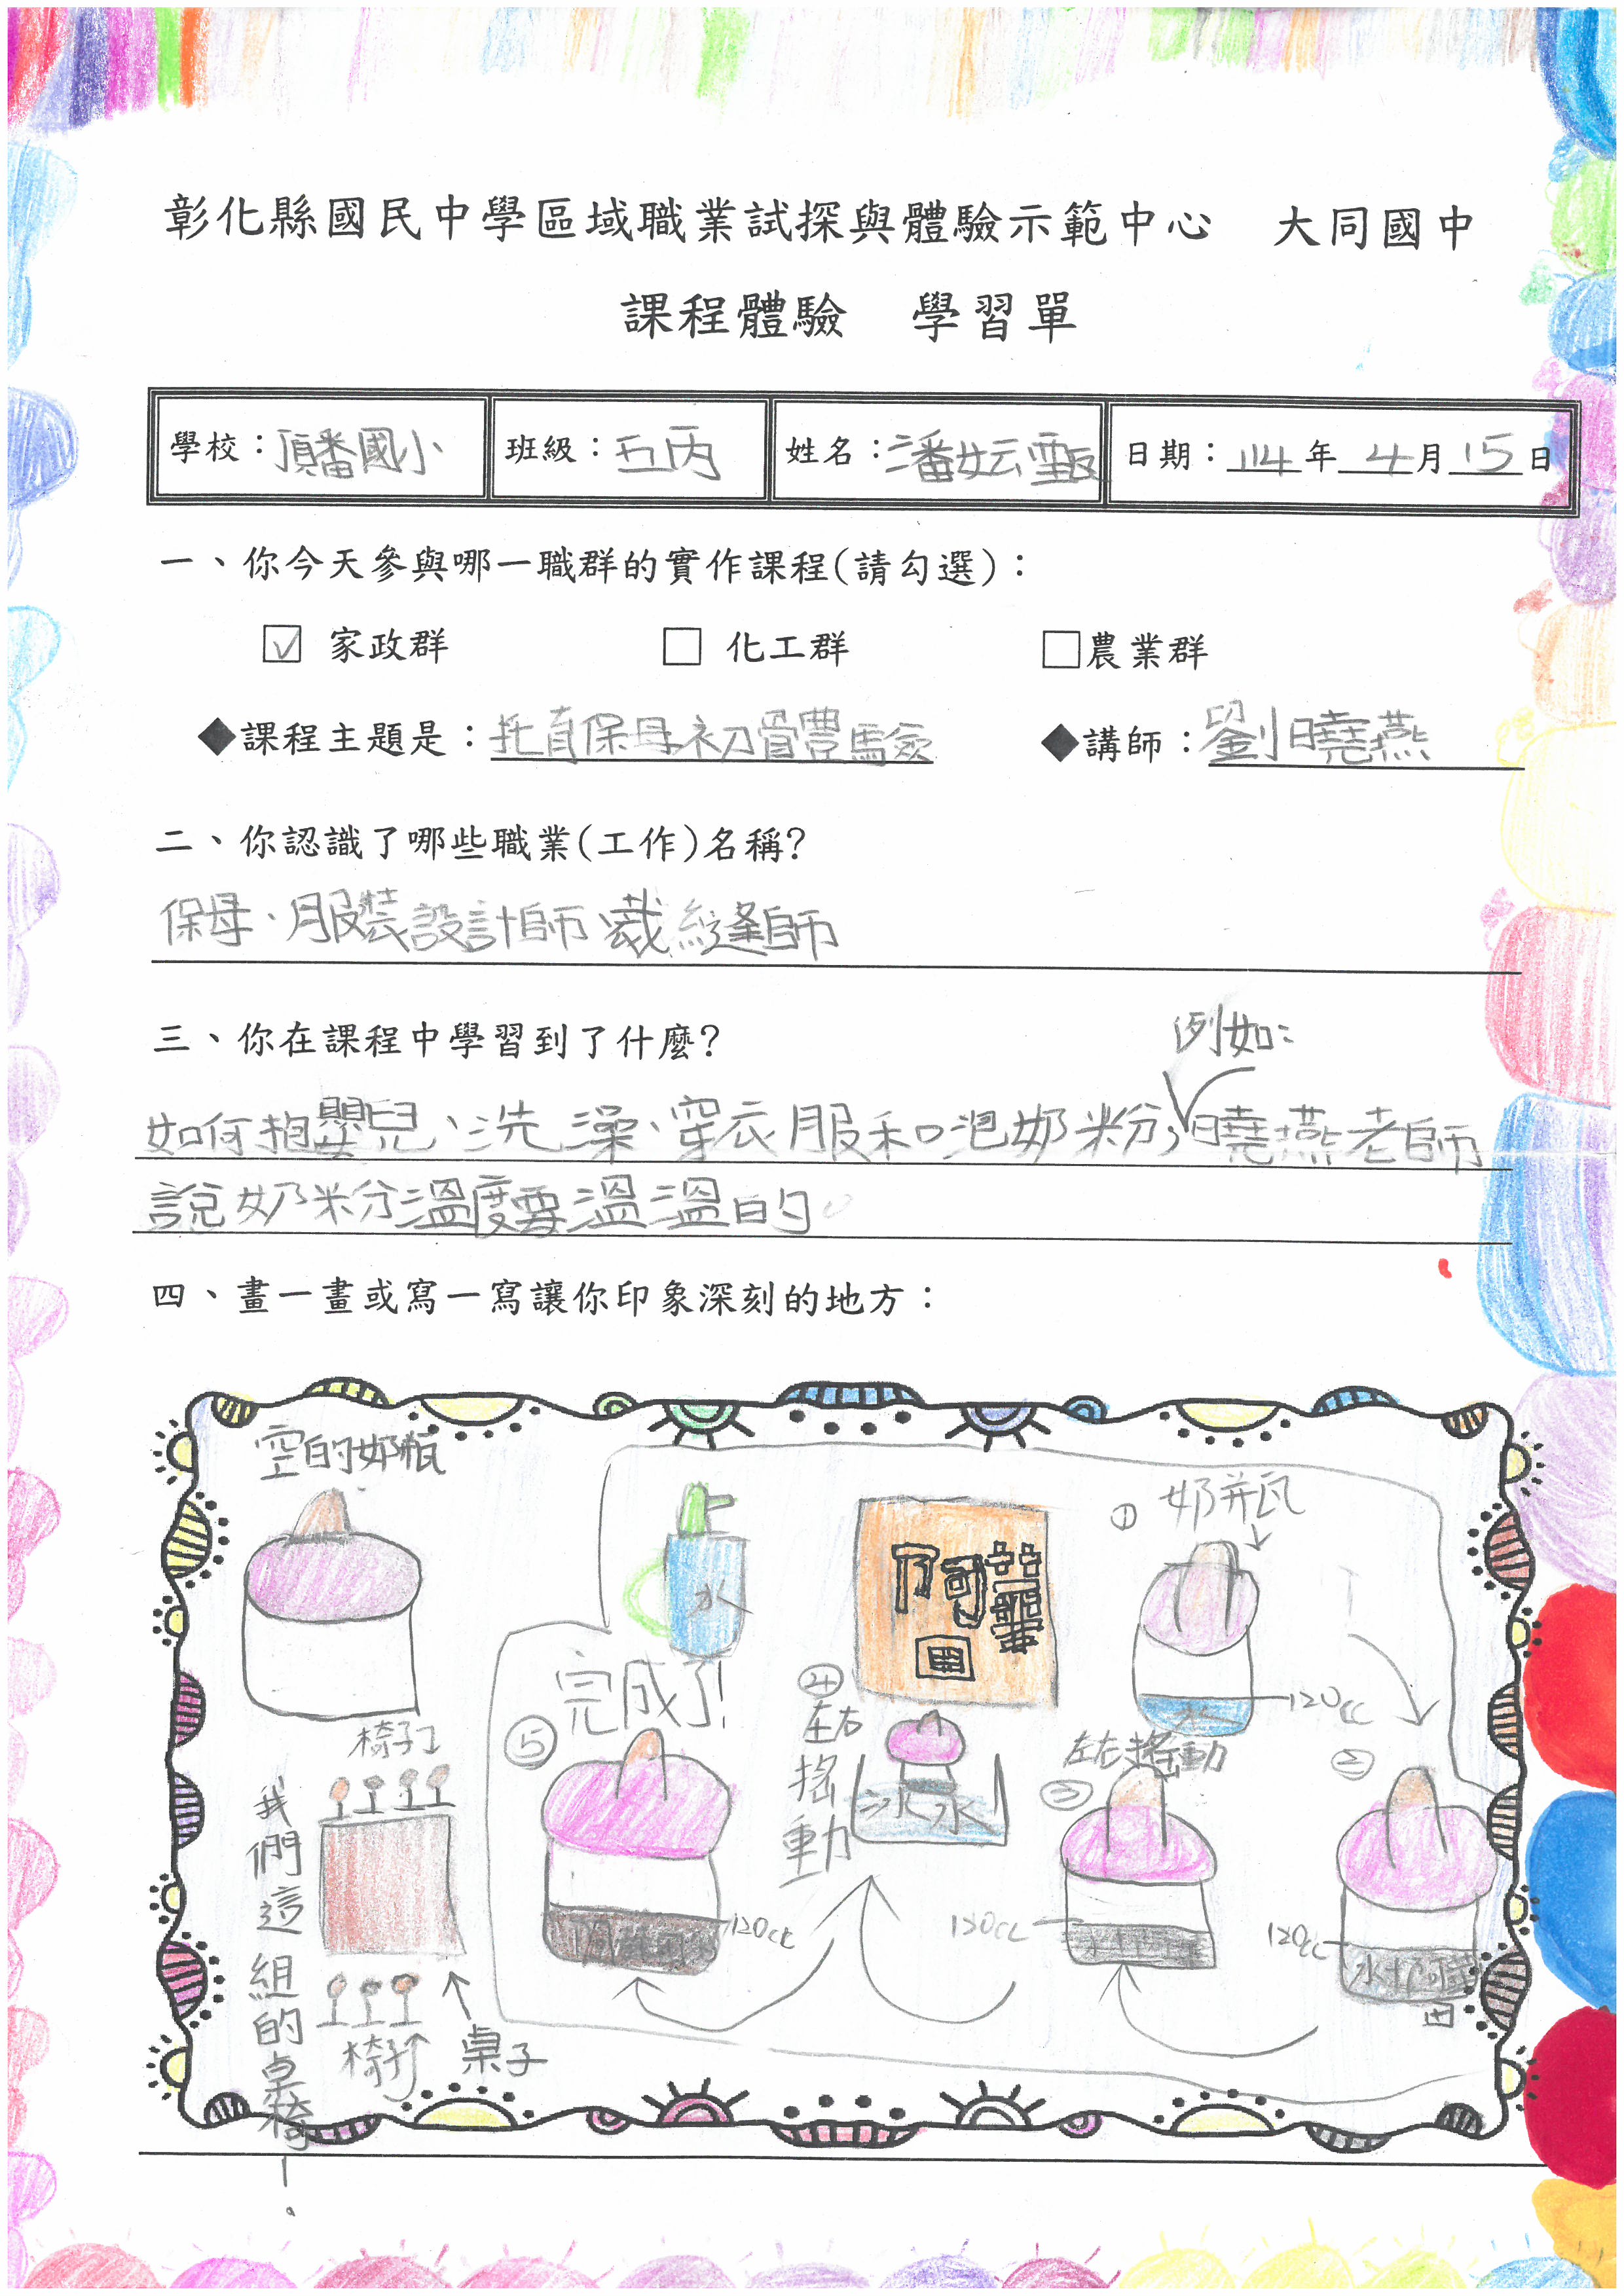 彰化縣國民中學區域職業試探與體驗示範中心　大同國中
課程體驗　學習單
學校：頂番國小 班級：五丙 姓名：潘妘甄 日期：114年4月15日
一、你今天參與哪一職群的實作課程(請勾選)：
☑ 家政群 □ 化工群 □農業群
◆課程主題是：托育保母初體驗 ◆講師：劉曉燕
二、你認識了哪些職業(工作)名稱?
保母、服裝設計師、裁縫師
三、你在課程中學習到了什麼?
例如：
如何抱嬰兒、洗澡、穿衣服和泡奶粉，曉燕老師
說奶粉溫度要溫溫的。
四、畫一畫或寫一寫讓你印象深刻的地方：
空的奶瓶
水
阿華
田
① 奶瓶
水
120cc
②
120cc
水+阿華
田
③ 左右搖動
120cc
④ 左右搖動
冰水
⑤ 完成了!
120cc
椅子
我們這組的桌椅!。
椅子
桌子